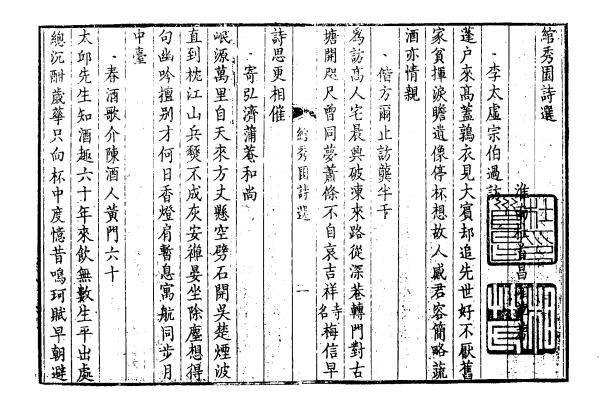 綰秀園詩選
淮南杜首昌
李太虛宗伯過訪
蓬户來高蓋鶉衣見大賓却追先世好不厭舊
家貧揮淚瞻遺像停杯想故人感君容簡略蔬
酒亦情親
偕方爾止訪龔半千
為訪高人宅晨興破凍來路從深巷轉門對古
塘開咫尺曾同夢蕭條不自哀吉祥寺名梅信早
綰秀園詩選
一
詩思更相催
寄弘濟蒲菴和尚
岷源萬里自天來方丈懸空劈石開吳楚煙波
直到枕江山兵燹不成灰安禪晏坐除塵想得
句幽吟擅别才何日香燈肩暫息寓航同步月
中臺
春酒歌介陳酒人黃門六十
太邱先生知酒趣六十年來飲無數生平出處
總沉酣歲華只向杯中度憶昔鳴珂賦早朝避